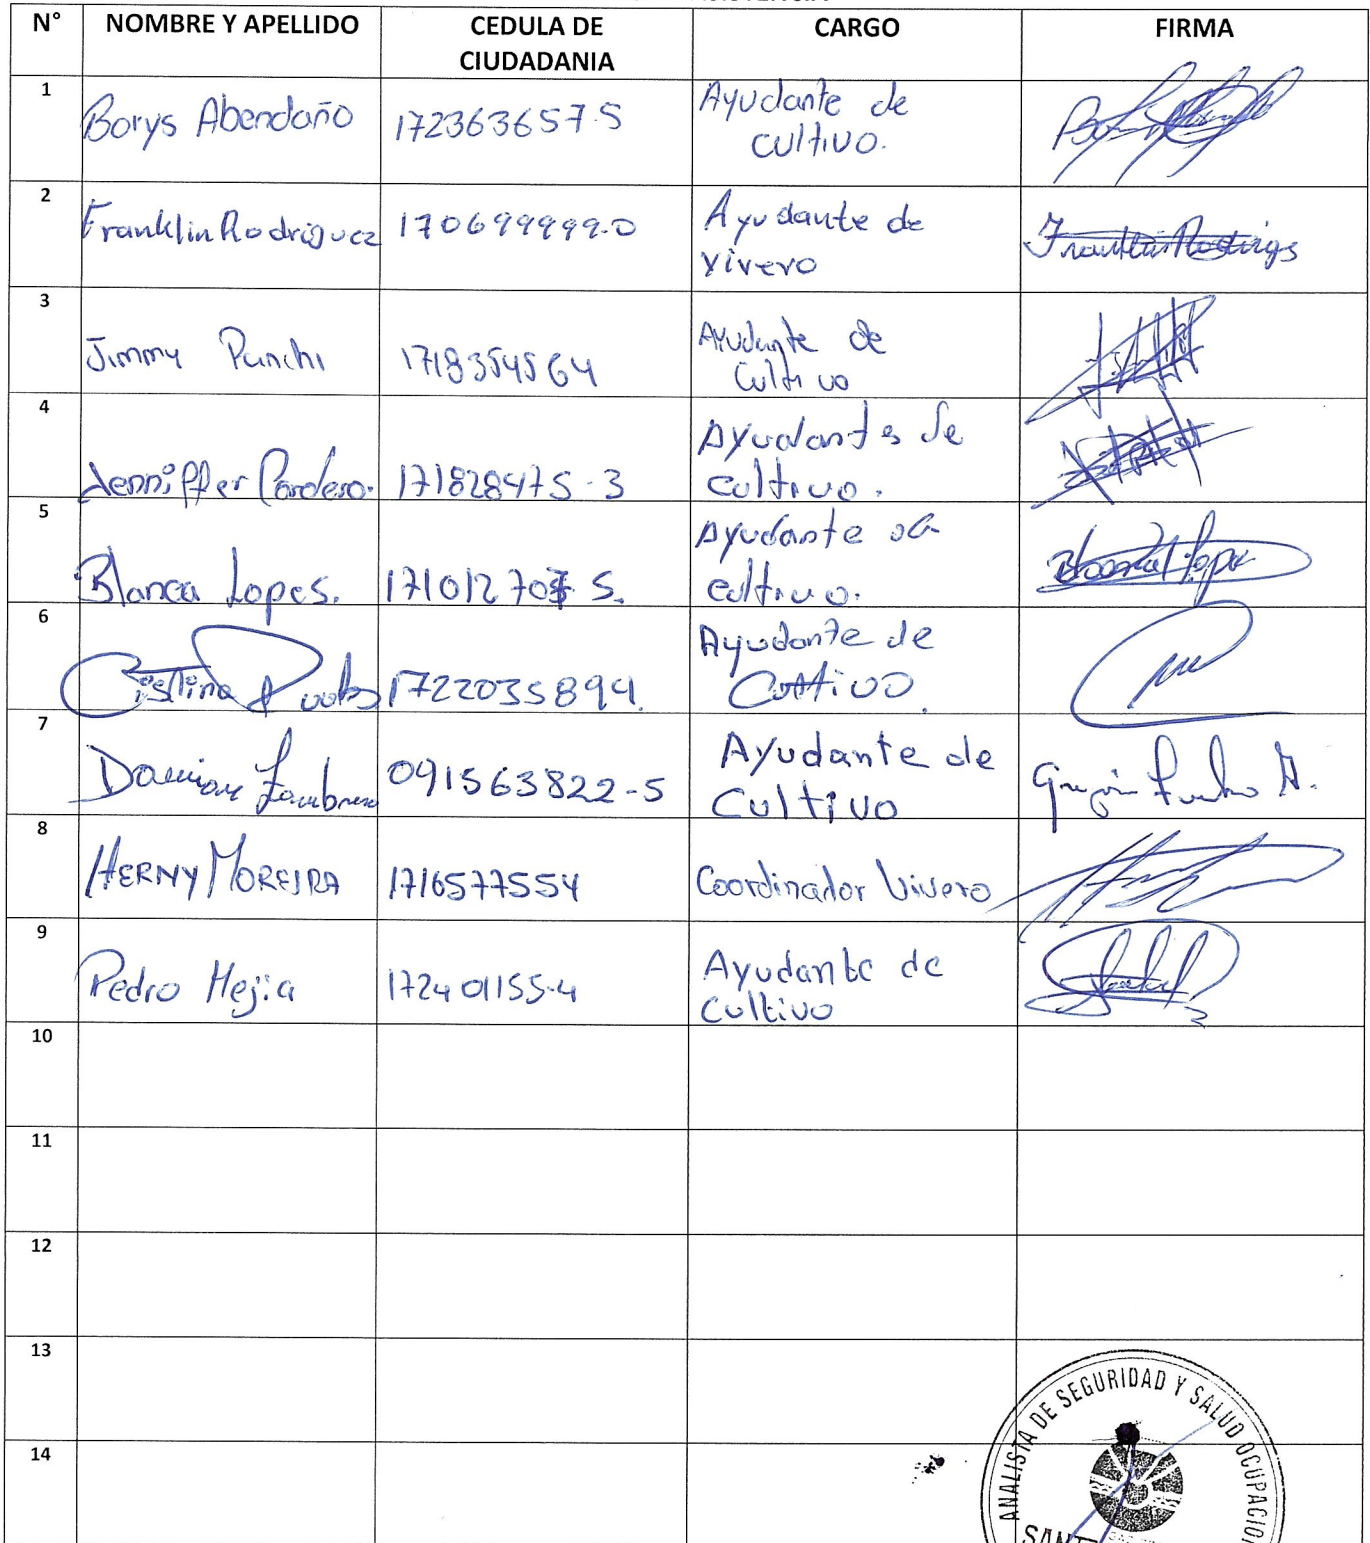 N° NOMBRE Y APELLIDO CEDULA DE CIUDADANIA CARGO FIRMA
1 Borys Abendaño 172363657-5 Ayudante de
cultivo.
2 Franklin Rodriguez 170699999-0 Ayudante de
vivero
3 Jimmy Punchi 1718354564 Ayudante de
Cultivo
4 Jenniffer Cordero. 171828475-3 Ayudantes de
cultivo.
5 Blanca Lopes. 171012707 5. Ayudante de
cultivo.
6 Cristina 1722035894. Ayudante de
Cultivo.
7 Damian Zambrano 091563822-5 Ayudante de
Cultivo
8 HERNY MOREIRA 1716577554 Coordinador Vivero
9 Pedro Mejia 172401155-4 Ayudante de
Cultivo
10
11
12
13
14
ANALISTA DE SEGURIDAD Y SALUD OCUPACION